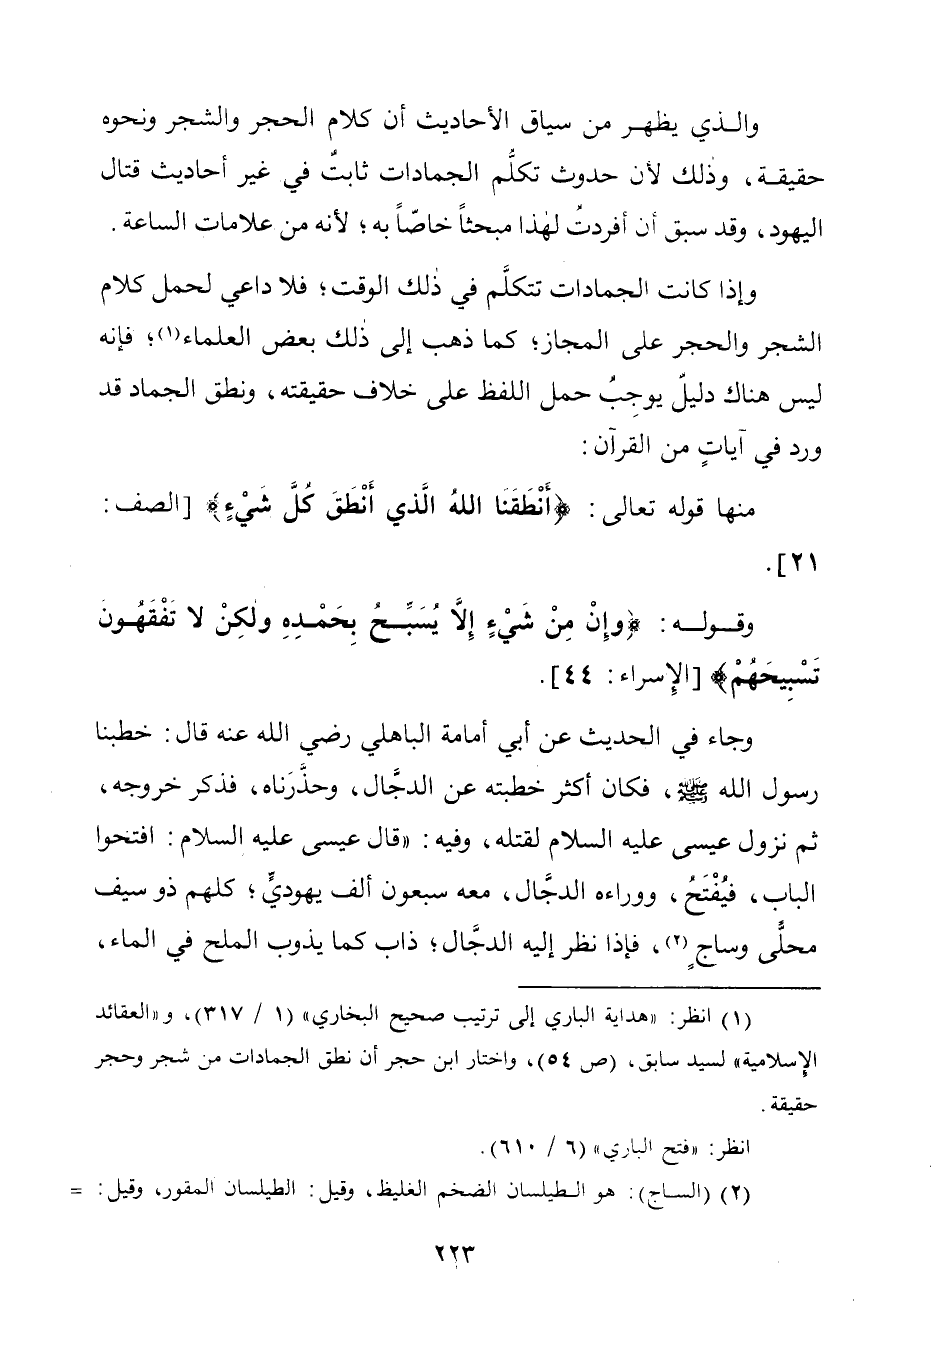 والذي يظهر من سياق الأحاديث أن كلام الحجر والشجر ونحوه
حقيقة، وذٰلك لأن حدوث تكلُّم الجمادات ثابتٌ في غير أحاديث قتال
اليهود، وقد سبق أن أفردتُ لهٰذا مبحثاً خاصّاً به؛ لأنه من علامات الساعة.
وإذا كانت الجمادات تتكلَّم في ذٰلك الوقت؛ فلا داعي لحمل كلام
الشجر والحجر على المجاز؛ كما ذهب إلى ذٰلك بعض العلماء(١)؛ فإنه
ليس هناك دليلٌ يوجبُ حمل اللفظ على خلاف حقيقته، ونطق الجماد قد
ورد في آياتٍ من القرآن:
منها قوله تعالى: ﴿أَنْطَقَنَا اللهُ الَّذي أَنْطَقَ كُلَّ شَيْءٍ﴾ [الصف:
٢١].
وقوله: ﴿وإِنْ مِنْ شَيْءٍ إِلَّا يُسَبِّحُ بِحَمْدِهِ ولٰكِنْ لا تَفْقَهُونَ
تَسْبِيحَهُمْ﴾ [الإسراء: ٤٤].
وجاء في الحديث عن أبي أمامة الباهلي رضي الله عنه قال: خطبنا
رسول الله ﷺ، فكان أكثر خطبته عن الدجَّال، وحذَّرَناه، فذكر خروجه،
ثم نزول عيسى عليه السلام لقتله، وفيه: «قال عيسى عليه السلام: افتحوا
الباب، فيُفْتَحُ، ووراءه الدجَّال، معه سبعون ألف يهوديٍّ؛ كلهم ذو سيف
محلًّى وساجٍ(٢)، فإذا نظر إليه الدجَّال؛ ذاب كما يذوب الملح في الماء،
(١) انظر: «هداية الباري إلى ترتيب صحيح البخاري» (١ / ٣١٧)، و«العقائد
الإسلامية» لسيد سابق، (ص ٥٤)، واختار ابن حجر أن نطق الجمادات من شجر وحجر
حقيقة.
انظر: «فتح الباري» (٦ / ٦١٠).
(٢) (الساج): هو الطيلسان الضخم الغليظ، وقيل: الطيلسان المقور، وقيل: =
٢٢٣